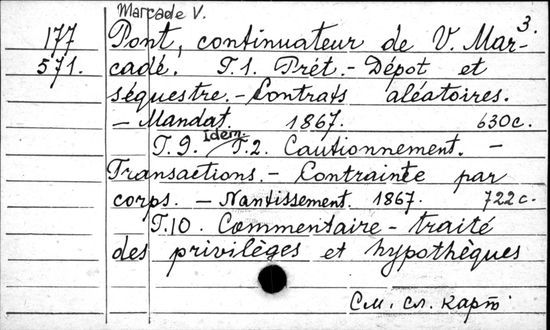 Marcade V.
3.
177 Pont, continuateur de V. Mar-
571. cadé. T.1. Prêt. - Dépot et
séquestre. - Contrats aléatoires.
- Mandat. 1867. 630c.
T.9. Idem. T.2. Cautionnement. -
Transactions. - Contrainte par
corps. - Nantissement. 1867. 722c.
T.10. Commentaire - traité
des privilèges et hypothèques
См. сл. карт.